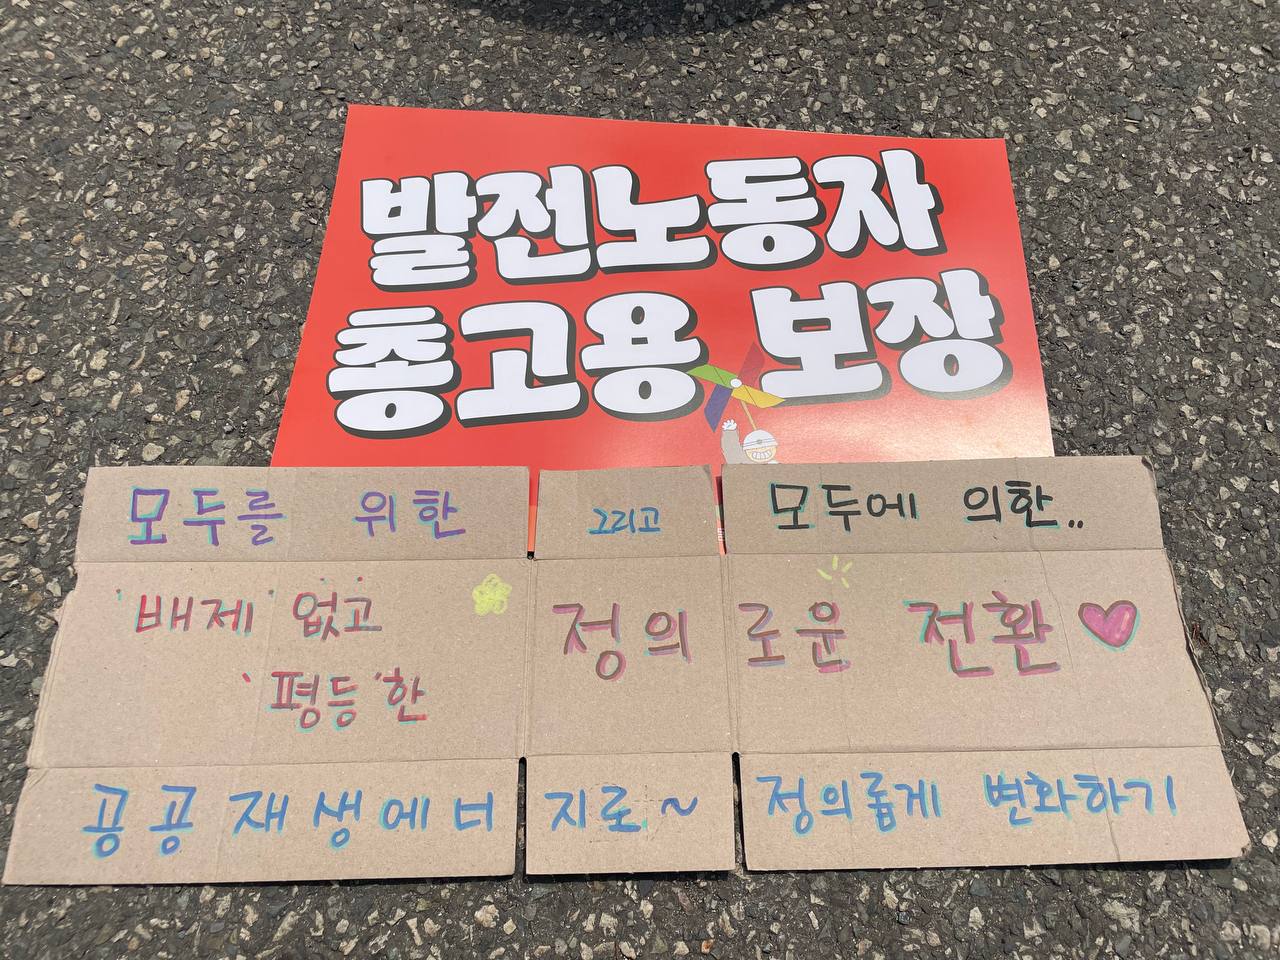 발전노동자
총고용 보장
모두를 위한 그리고 모두에 의한..
'배제' 없고
'평등'한
정의로운 전환
공공재생에너지로~ 정의롭게 변화하기